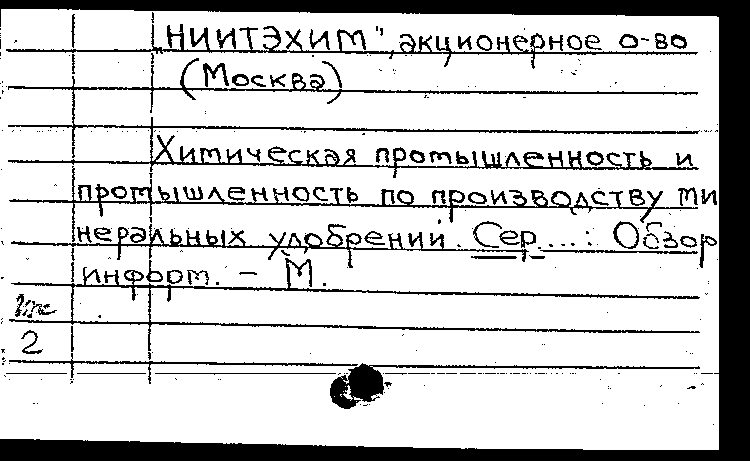 „НИИТЭХИМ", акционерное о-во
(Москва)
Химическая промышленность и
промышленность по производству ми
неральных удобрений. Сер....: Обзор
информ. – М.
2